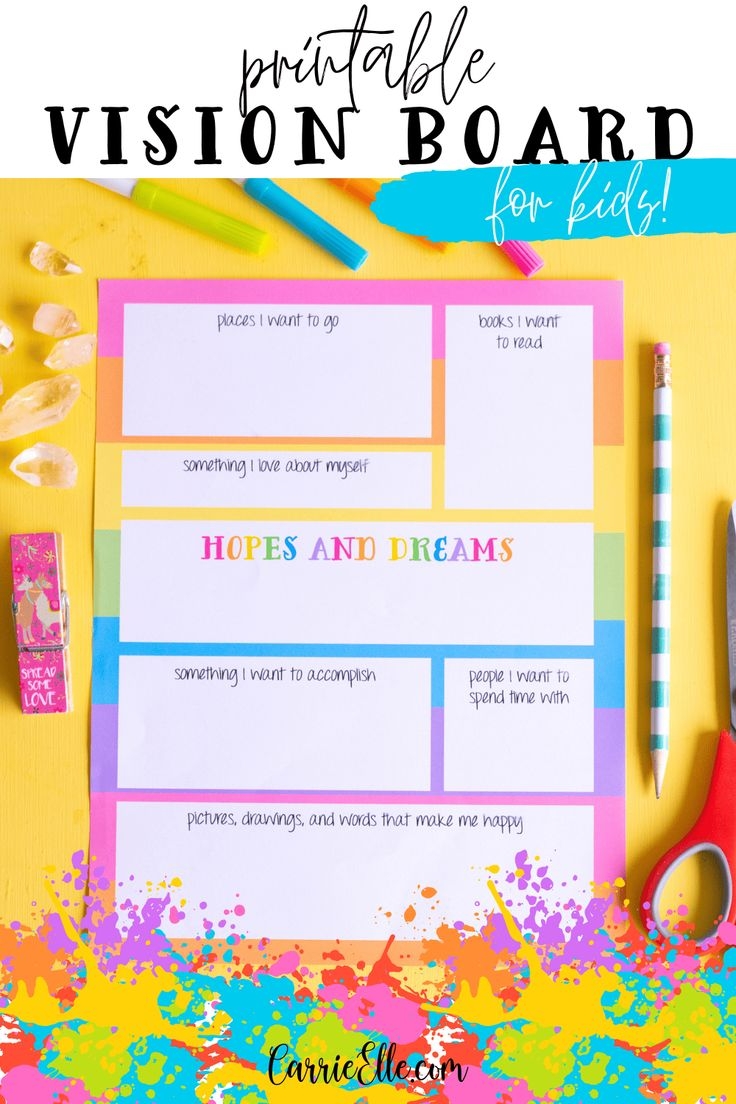 printable
VISION BOARD
for kids!
places I want to go
books I want
to read
something I love about myself
HOPES AND DREAMS
something I want to accomplish
people I want to
spend time with
SPREAD
SOME
LOVE
pictures, drawings, and words that make me happy
CarrieElle.com